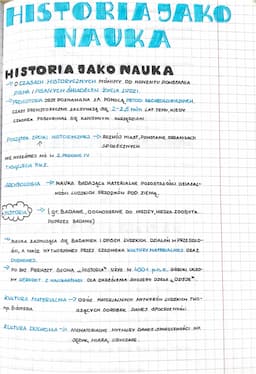 HISTORIA JAKO
NAUKA
HISTORIA JAKO NAUKA
→ O CZASACH HISTORYCZNYCH MÓWIMY OD MOMENTU POWSTANIA
PISMA I PISANYCH ŚWIADECTW ŻYCIA LUDZI.
→ PREHISTORIA JEST POZNAWANA ZA POMOCĄ METOD ARCHEOLOGICZNYCH.
CZASY PREHISTORYCZNE ZACZYNAJĄ SIĘ 2-2,5 mln LAT TEMU, KIEDY
CZŁOWIEK POSŁUGIWAŁ SIĘ KAMIENNYMI NARZĘDZIAMI.
POCZĄTEK EPOKI HISTORYCZNEJ → ROZWÓJ MIAST, POWSTANIE ORGANIZACJI
SPOŁECZNYCH
MIĘ W 2 POŁOWIE IV
TYSIĄCLECIA P.N.E.
ARCHEOLOGIA → NAUKA BADAJĄCA MATERIALNE POZOSTAŁOŚCI DZIAŁAL-
NOŚCI LUDZKICH PRZODKÓW POD ZIEMIĄ.
HISTORIA → (gr. BADANIE, DOCHODZENIE DO WIEDZY, WIEDZA ZDOBYTA
POPRZEZ BADANIE)
→ NAUKA ZAJMUJĄCA SIĘ BADANIEM I OPISEM LUDZKICH DZIAŁAŃ W PRZESZŁO-
ŚCI, A TAKŻE WYTWORZONEJ PRZEZ CZŁOWIEKA KULTURY MATERIALNEJ ORAZ
DUCHOWEJ.
→ PO RAZ PIERWSZY SŁOWA „HISTORIA" UŻYŁ W 400 r. p.n.e. GRECKI UCZO-
NY HERODOT Z HALIKARNASU DLA OKREŚLENIA SWOJEGO DZIEŁA „DZIEJE".
KULTURA MATERIALNA → OGÓŁ MATERIALNYCH WYTWORÓW LUDZKICH TWO-
RZĄCYCH DOROBEK DANEJ SPOŁECZNOŚCI
KULTURA DUCHOWA → NIEMATERIALNE WYTWORY DANEJ SPOŁECZNOŚCI NP.
JĘZYK, WIARA, OBYCZAJE.